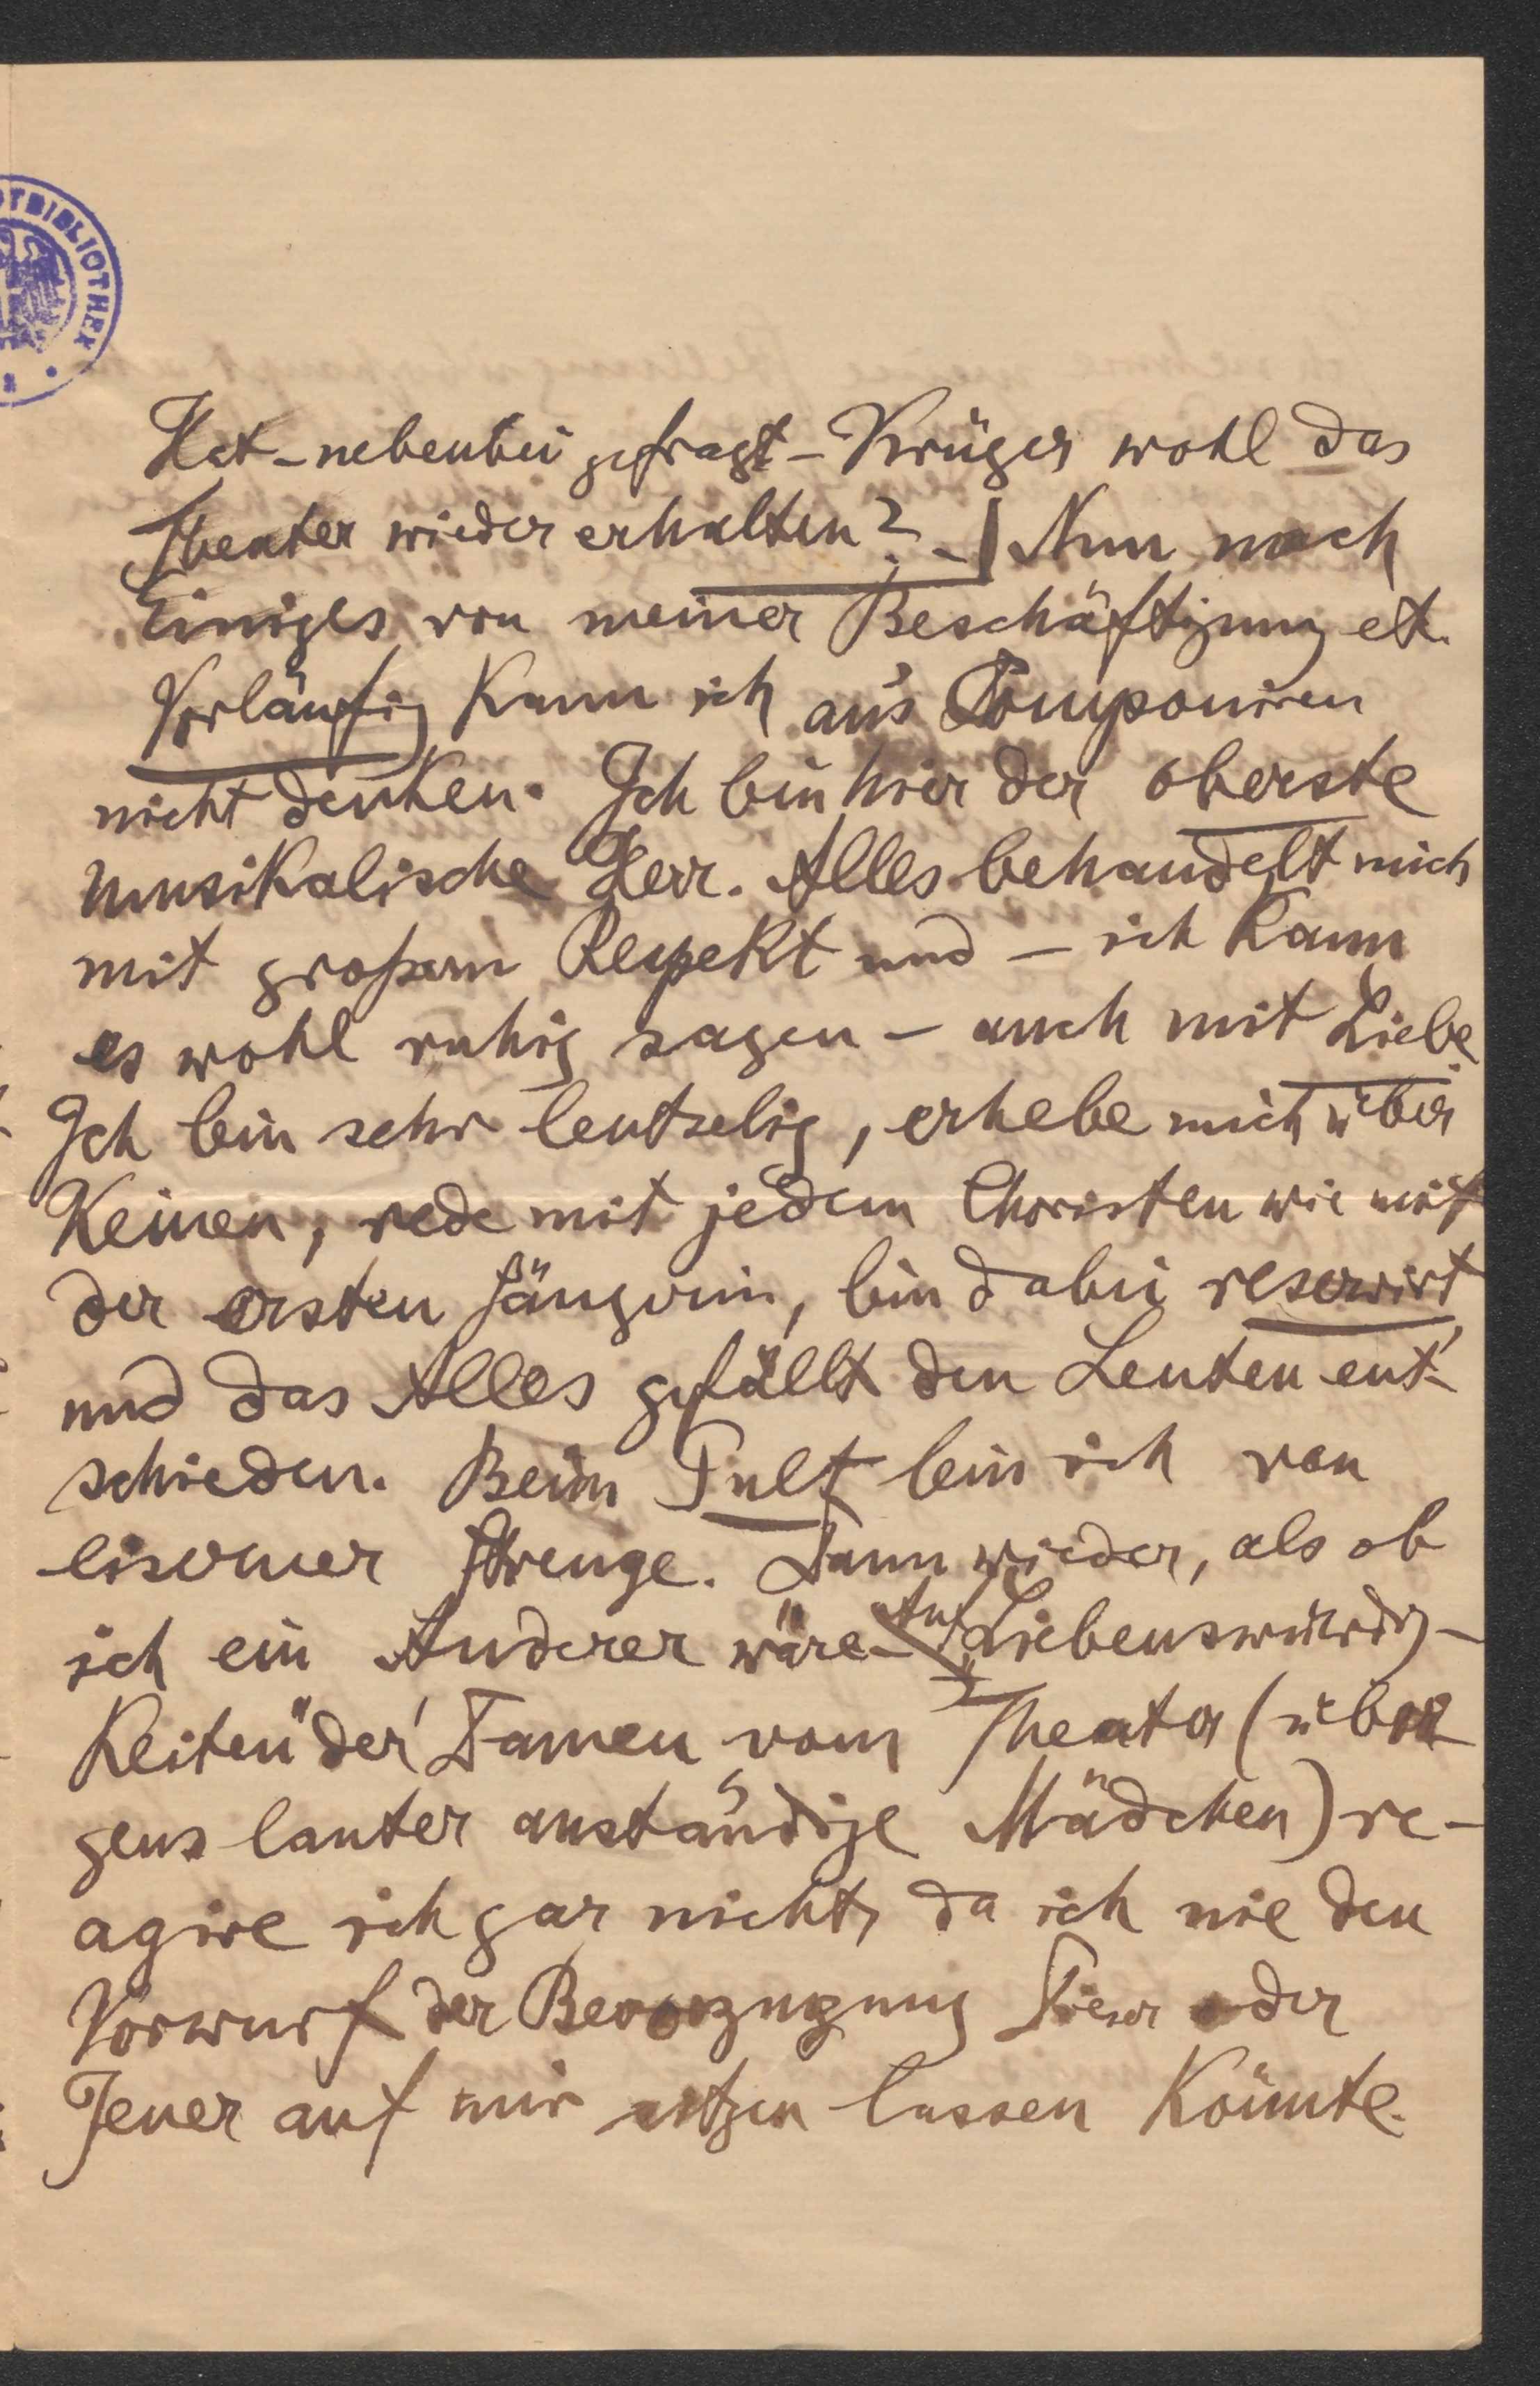 OTBIBLIOTHEK
Hat – nebenbei gefragt – Krüger wohl das
Theater wieder erhalten? – | Nun noch
Einiges von meiner Beschäftigung etc.
Vorläufig kann ich an's Componiren
nicht denken. Ich bin hier der oberste
musikalische Herr. Alles behandelt mich
mit großem Respekt und – ich kann
es wohl ruhig sagen – auch mit Liebe
Ich bin sehr leutselig, erhebe mich über
Keinen, rede mit jedem Choristen wie mit
der ersten Sängerin, bin dabei reservirt,
und das Alles gefällt den Leuten ent-
schieden. Beim Pult bin ich von
eiserner Strenge. Dann wieder, als ob
ich ein Anderer wäre. Auf „Liebenswürdig-
keiten" der Damen vom Theater (übri-
gens lauter anständige Mädchen) re-
agire ich gar nicht, da ich nie den
Vorwurf der Bevorzugung Dieser oder
Jener auf mir sitzen lassen könnte.